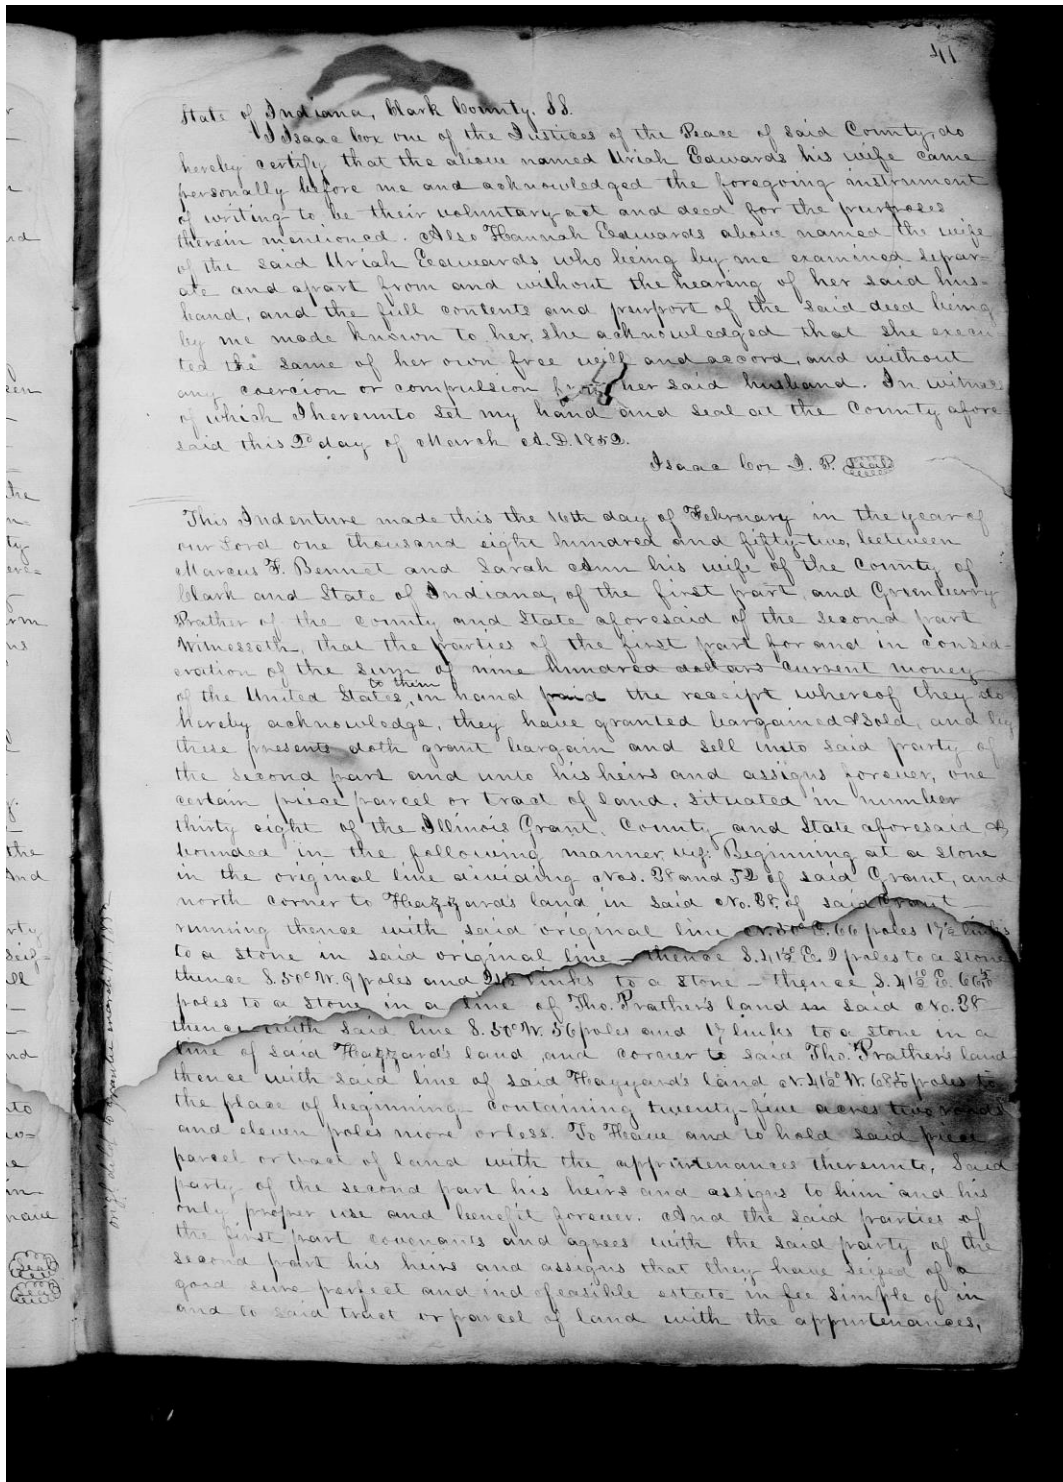 41
State of Indiana, Clark County. SS.
I Isaac Cox one of the Justices of the Peace of said County, do
hereby certify that the above named Uriah Edwards his wife came
personally before me and acknowledged the foregoing instrument
of writing to be their voluntary act and deed for the purposes
therein mentioned. Also Hannah Eedwards above named the wife
of the said Uriah Eedwards who being by me examined separ-
ate and apart from and without the hearing of her said hus-
band, and the full contents and purport of the said deed being
by me made known to her, she acknowledged that she execu
ted the same of her own free will and accord, and without
any coercion or compulsion from her said husband. In witness
of which I hereunto set my hand and seal at the County afore
said this 2d day of March A.D. 1852.
Isaac Cox J. P. Seal
This Indenture made this the 16th day of February in the year of
our Lord one thousand eight hundred and fifty-two, between
Marcus F. Bennet and Sarah Ann his wife of the County of
Clark and State of Indiana, of the first part, and Greenberry
Prather of the County and State aforesaid of the second part
Witnesseth, that the parties of the first part for and in consid-
eration of the sum of nine hundred dollars current money
of the United States, to them in hand paid the receipt whereof they do
hereby acknowledge, they have granted bargained & sold, and by
these presents doth grant bargain and sell unto said party of
the second part and unto his heirs and assigns forever, one
certain piece parcel or tract of land, situated in number
thirty eight of the Illinois Grant, County and State aforesaid &
bounded in the following manner, viz: Beginning at a stone
in the original line dividing Nos. 38 and 52 of said Grant, and
north corner to Hazzard's land in said No. 38, of said Grant
running thence with said original line N. 50° E. 66 poles 17½ links
to a stone in said original line - thence S. 41½° E. 2 poles to a stone
thence S. 50° W. 9 poles and links to a stone - thence S. 41½° E.
poles to a stone in a line of Tho. Prather's land in said No. 38
thence with said line S. 50° W. 56 poles and 17 links to a stone in a
line of said Hazzard's land and corner to said Tho. Prather's land
thence with said line of said Hazzard's land N. 41½° W. poles to
the place of beginning - containing twenty-five acres two roods
and eleven poles more or less. To Have and to hold said piece
parcel or tract of land with the appurtenances thereunto, Said
party of the second part his heirs and assigns to him and his
only proper use and benefit forever. And the said parties of
the first part covenants and agrees with the said party of the
second part his heirs and assigns that they have seized of a
good sure perfect and indefeasible estate in fee simple of in
and to said tract or parcel of land with the appurtenances,